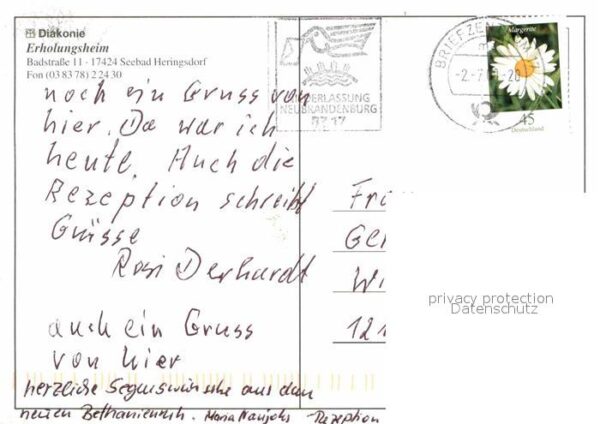 Diakonie
Erholungsheim
Badstraße 11 · 17424 Seebad Heringsdorf
Fon (03 83 78) 2 24 30
noch ein Gruss von
hier. Da war ich
heute. Auch die
Rezeption schreibt
Grüsse
Rosi Derhardt
auch ein Gruss
von hier
herzliche Segenswünsche aus dem
neuen
Maria
Rezeption
ERLASSUNG
NEUBRANDENBURG
BZ 17
BRIEFZEN
-2.-7
-20
Margerite
45
Deutschland
Fr
Ger
Wi
12
privacy protection
Datenschutz